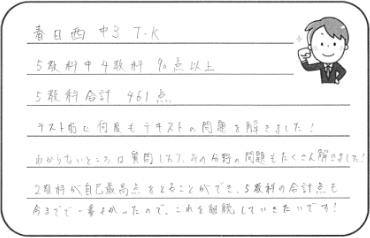 春日西 中3 T.K
5教科中4教科 90点以上
5教科合計 461点
テスト前に何度もテキストの問題を解きました！
わからないところは質問したり、その分野の問題もたくさん解きました！
2教科が自己最高点をとることができ、5教科の合計点も
今までで一番よかったので、これを継続していきたいです！